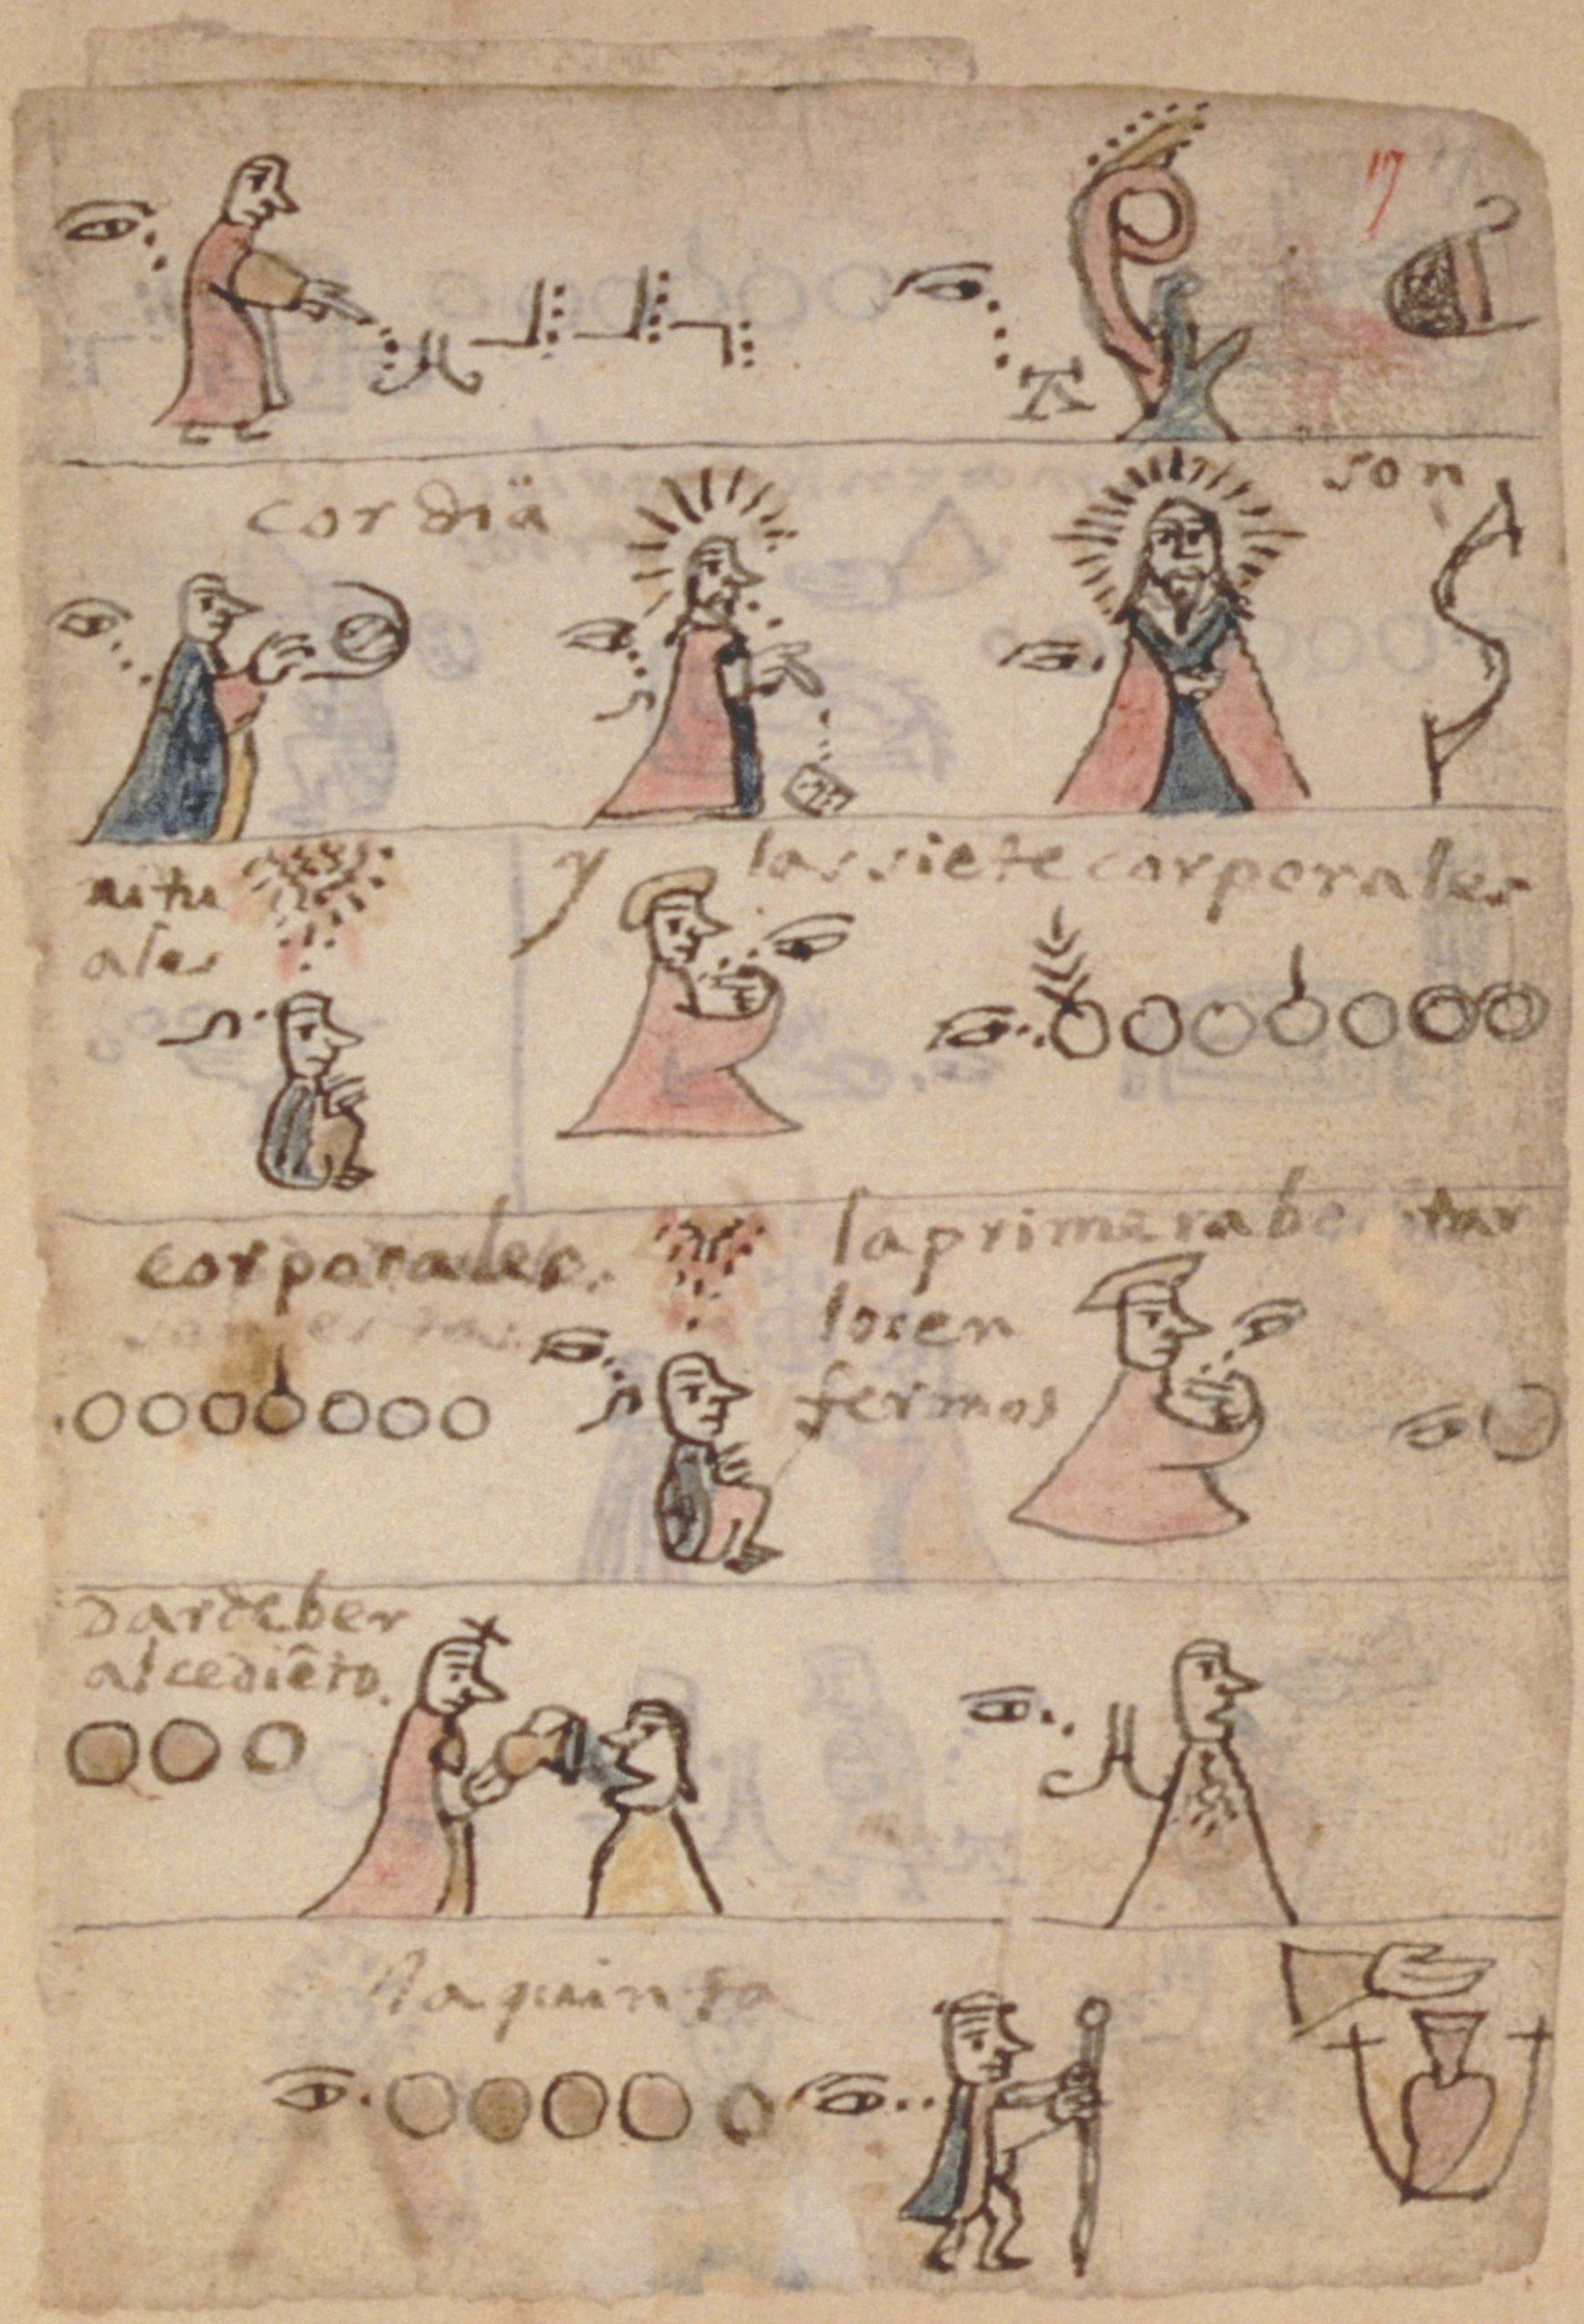 17
cordiä
son
ales
y las siete corporales
corporales.
la primera
los en
fermos
dar de ber
al cediêto.
la quinta